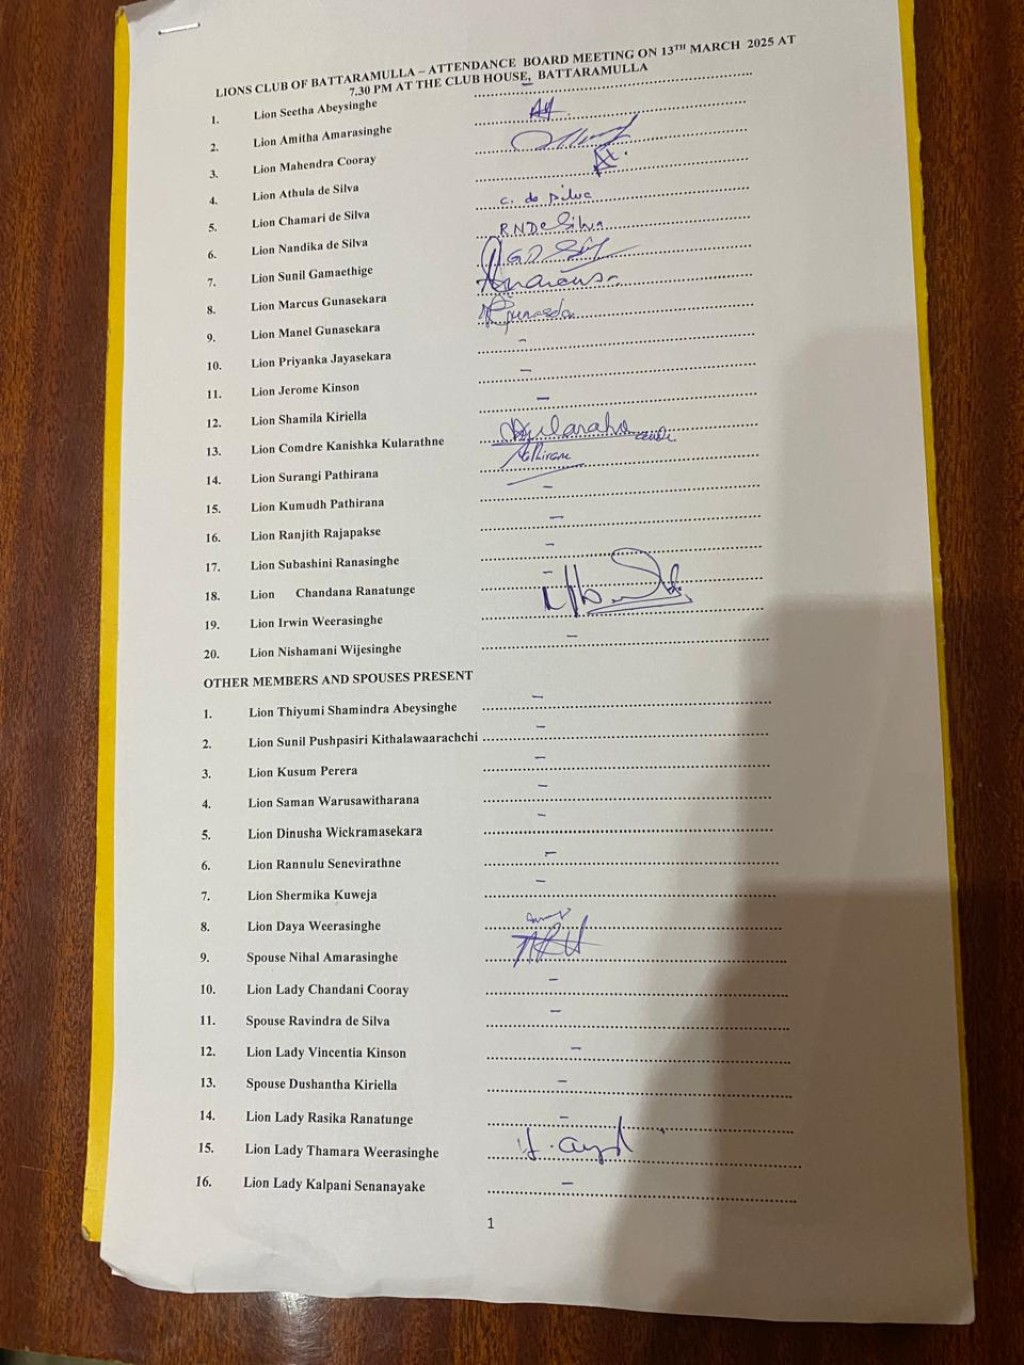 LIONS CLUB OF BATTARAMULLA – ATTENDANCE BOARD MEETING ON 13TH MARCH 2025 AT
7.30 PM AT THE CLUB HOUSE, BATTARAMULLA
1. Lion Seetha Abeysinghe –
2. Lion Amitha Amarasinghe
3. Lion Mahendra Cooray
4. Lion Athula de Silva
5. Lion Chamari de Silva C. de Silva
6. Lion Nandika de Silva RNDe Silva
7. Lion Sunil Gamaethige
8. Lion Marcus Gunasekara
9. Lion Manel Gunasekara
10. Lion Priyanka Jayasekara –
11. Lion Jerome Kinson –
12. Lion Shamila Kiriella –
13. Lion Comdre Kanishka Kularathne
14. Lion Surangi Pathirana
15. Lion Kumudh Pathirana –
16. Lion Ranjith Rajapakse –
17. Lion Subashini Ranasinghe –
18. Lion Chandana Ranatunge –
19. Lion Irwin Weerasinghe
20. Lion Nishamani Wijesinghe –
OTHER MEMBERS AND SPOUSES PRESENT
1. Lion Thiyumi Shamindra Abeysinghe –
2. Lion Sunil Pushpasiri Kithalawaarachchi –
3. Lion Kusum Perera –
4. Lion Saman Warusawitharana –
5. Lion Dinusha Wickramasekara –
6. Lion Rannulu Senevirathne –
7. Lion Shermika Kuweja –
8. Lion Daya Weerasinghe
9. Spouse Nihal Amarasinghe
10. Lion Lady Chandani Cooray –
11. Spouse Ravindra de Silva –
12. Lion Lady Vincentia Kinson –
13. Spouse Dushantha Kiriella –
14. Lion Lady Rasika Ranatunge –
15. Lion Lady Thamara Weerasinghe
16. Lion Lady Kalpani Senanayake –
1